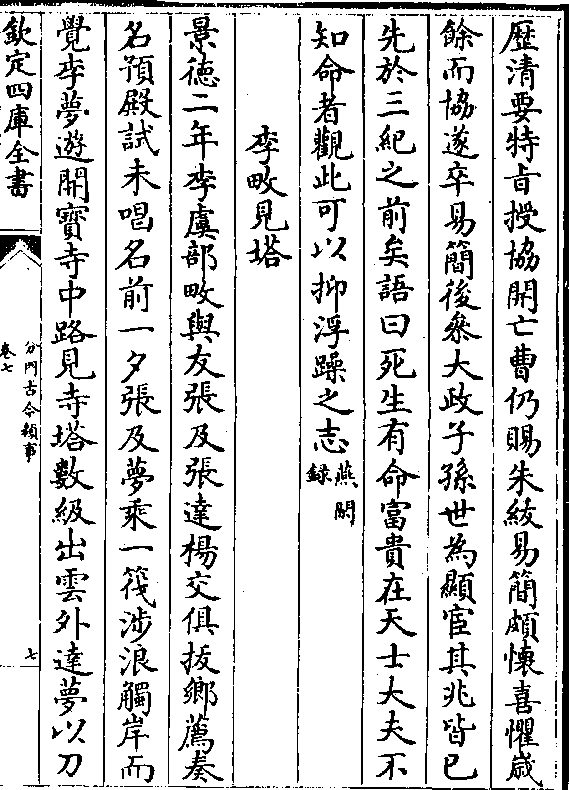 歴清要特㫖授協開亡曹仍賜朱紱易簡頗懐喜懼嵗
餘而協遂卒易簡後叅大政子孫世為顯宦其兆皆已
先於三紀之前矣語曰死生有命富貴在天士大夫不
知命者觀此可以抑浮躁之志燕閒録
李畋見塔
景徳二年李虞部畋與友張及張逹楊交俱拔鄉薦奏
名預殿試未唱名前一夕張及夢乗一筏涉浪觸岸而
覺李夢遊開寳寺中路見寺塔數級出雲外逹夢以刀
欽定四庫全書
分門古今類事
卷七
七